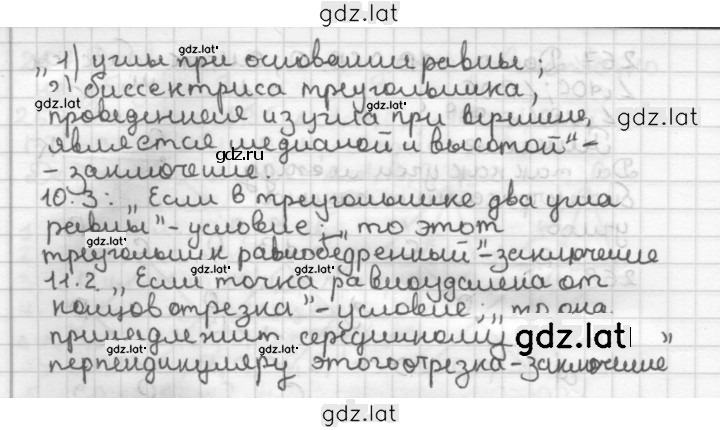 gdz.lat
„ 1) углы при основании равны;
2) биссектриса треугольника,
проведенная из угла при вершине,
является медианой и высотой" -
- заключение.
10.3: „Если в треугольнике два угла
равны" - условие; „то этот
треугольник равнобедренный" - заключение
11.2 „Если точка равноудалена от
концов отрезка" - условие; „то она
принадлежит серединному
перпендикуляру этого отрезка - заключение "
gdz.lat
gdz.lat
gdz.lat
gdz.lat
gdz.lat
gdz.ru
gdz.lat
gdz.lat
gdz.lat
gdz.lat
gdz.lat
gdz.lat
gdz.lat